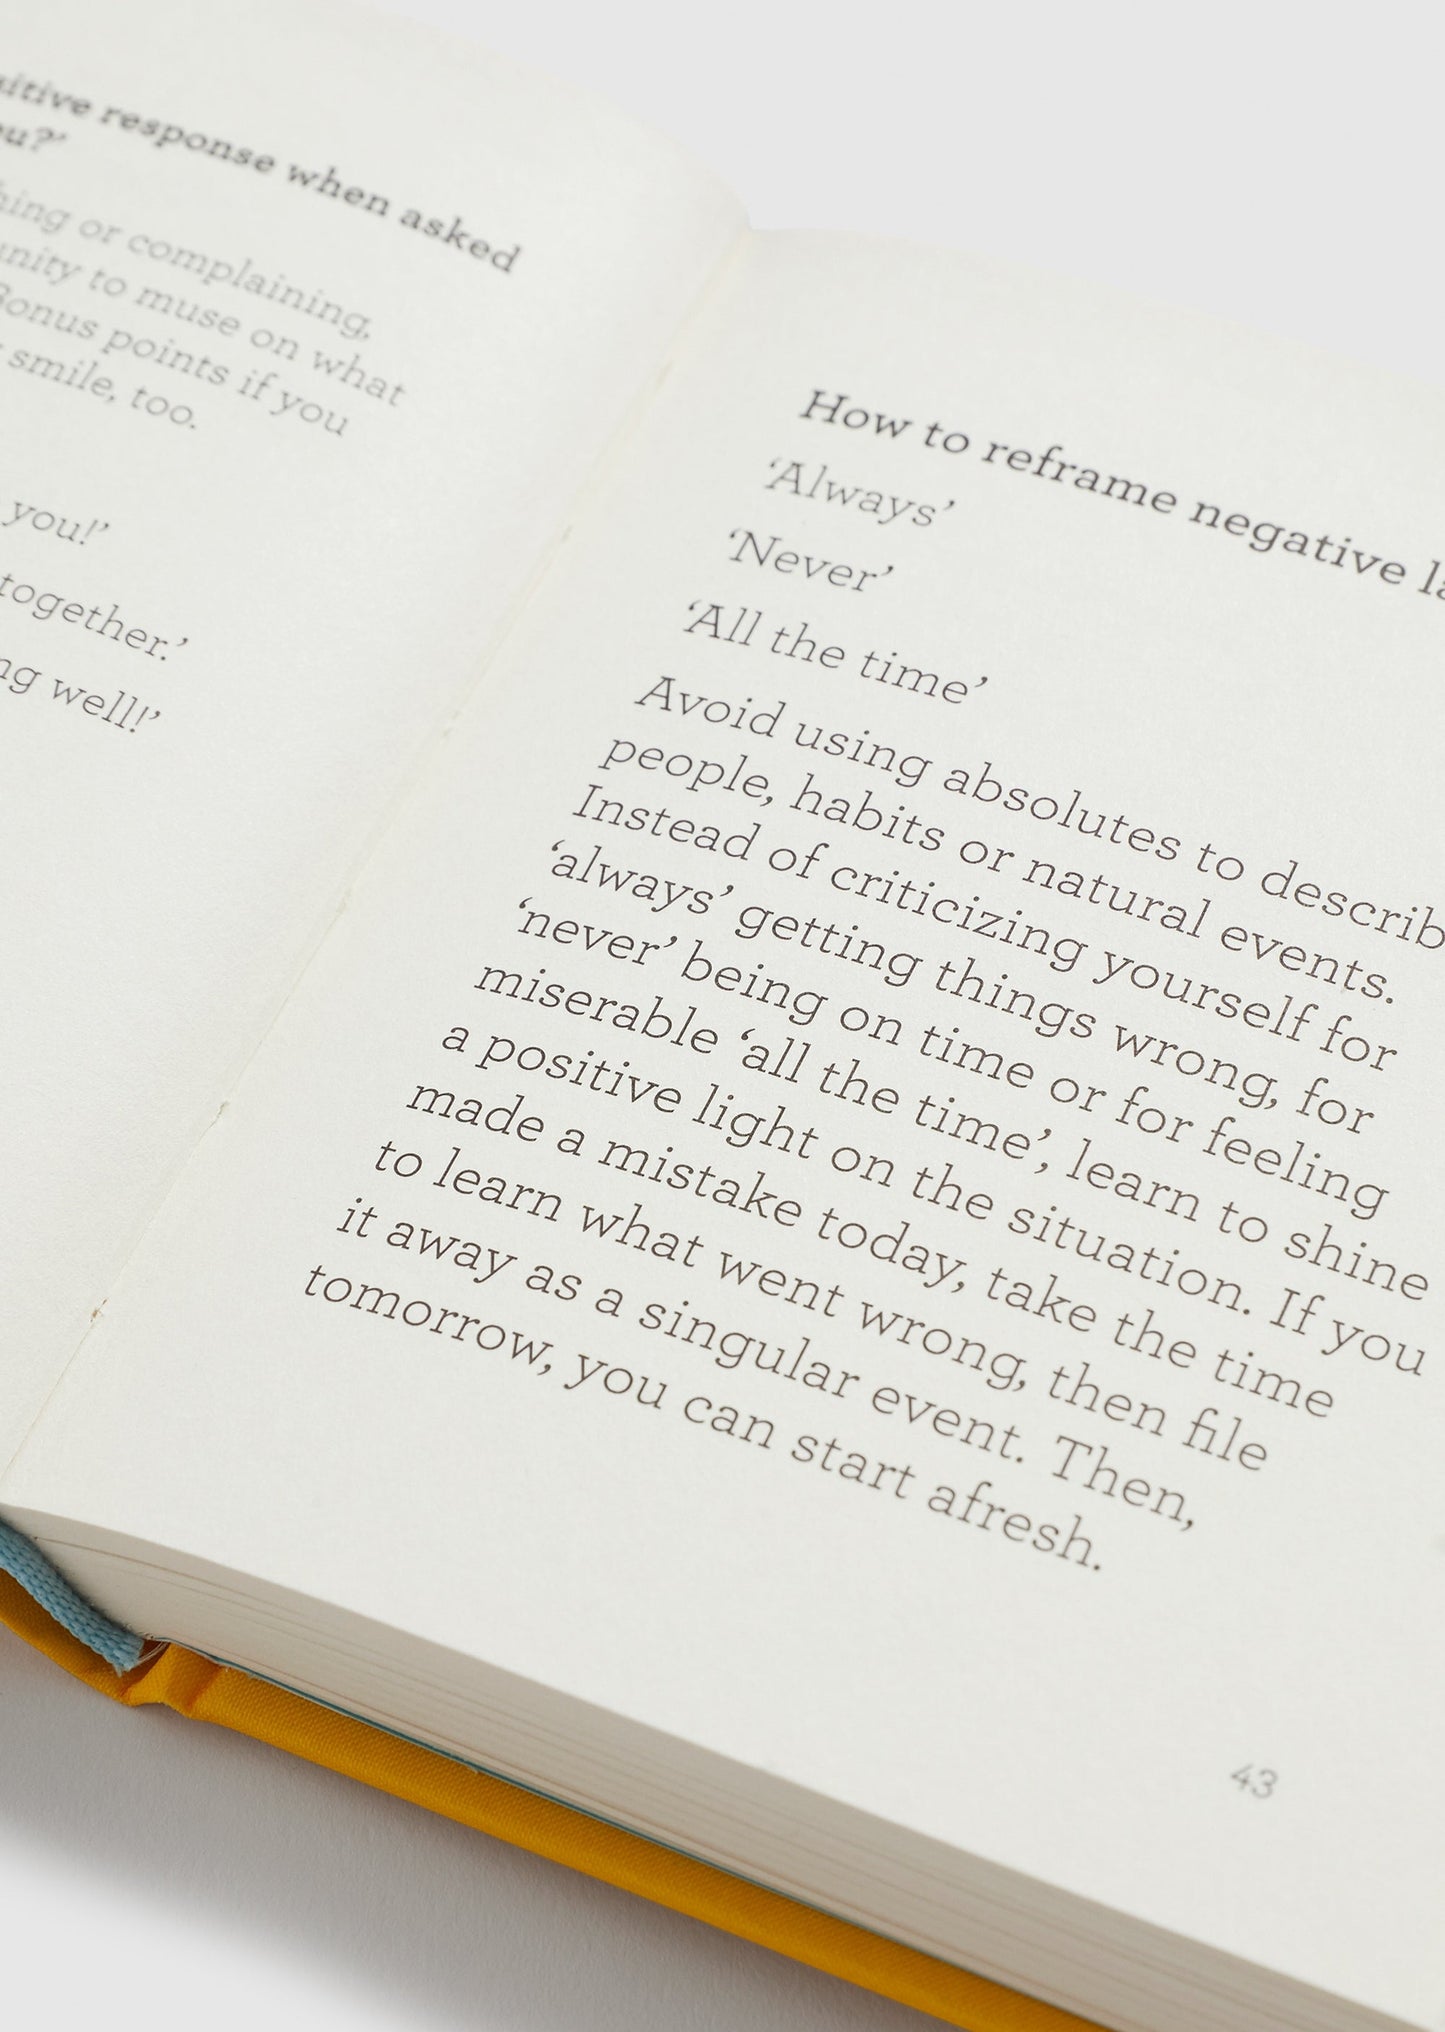 response when asked
or complaining,
to muse on what
Bonus points if you
smile, too.
you!’
together.’
well!’
How to reframe negative
‘Always’
‘Never’
‘All the time’
Avoid using absolutes to
people, habits or natural events.
Instead of criticizing yourself for
‘always’ getting things wrong, for
‘never’ being on time or for feeling
miserable ‘all the time’, learn to shine
a positive light on the situation. If you
made a mistake today, take the time
to learn what went wrong, then file
it away as a singular event. Then,
tomorrow, you can start afresh.
43